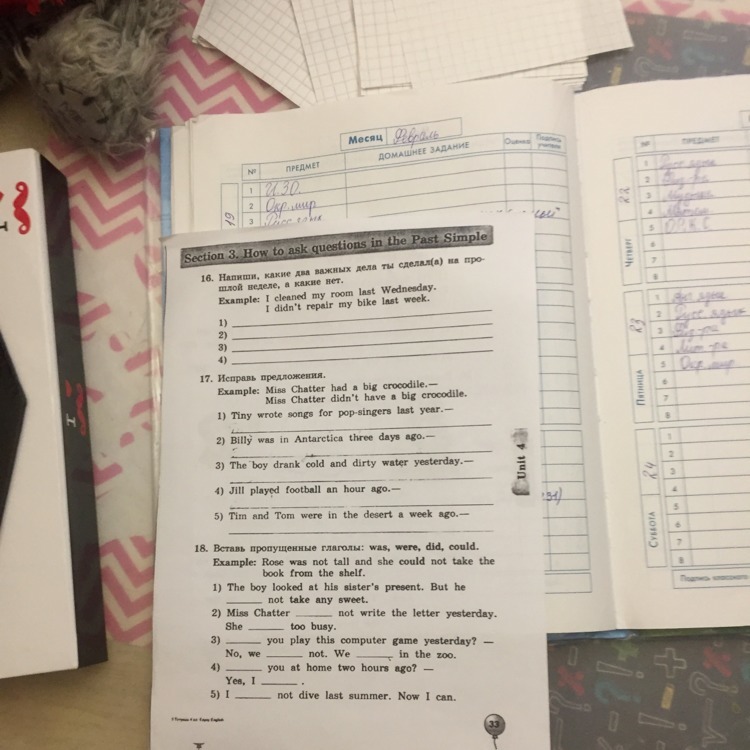 Месяц Февраль
№ ПРЕДМЕТ ДОМАШНЕЕ ЗАДАНИЕ Оценка Подпись учителя
19
1 ИЗО.
2 Окр. мир
3 Русс. язык
Section 3. How to ask questions in the Past Simple
16. Напиши, какие два важных дела ты сделал(а) на про-
шлой неделе, а какие нет.
Example: I cleaned my room last Wednesday.
I didn't repair my bike last week.
1)
2)
3)
4)
17. Исправь предложения.
Example: Miss Chatter had a big crocodile.—
Miss Chatter didn't have a big crocodile.
1) Tiny wrote songs for pop-singers last year.—
2) Billy was in Antarctica three days ago.—
3) The boy drank cold and dirty water yesterday.—
4) Jill played football an hour ago.—
5) Tim and Tom were in the desert a week ago.—
Unit 4
18. Вставь пропущенные глаголы: was, were, did, could.
Example: Rose was not tall and she could not take the
book from the shelf.
1) The boy looked at his sister's present. But he
______ not take any sweet.
2) Miss Chatter ______ not write the letter yesterday.
She ______ too busy.
3) ______ you play this computer game yesterday? —
No, we ______ not. We ______ in the zoo.
4) ______ you at home two hours ago? —
Yes, I ______ .
5) I ______ not dive last summer. Now I can.
33
№ ПРЕДМЕТ
ЧЕТВЕРГ 22
1 Русс. язык
2
3 Музыка
4
5
6
7
8
ПЯТНИЦА 23
1
2 Русс. язык
3
4 Лит-ра
5 Окр. мир
6
7
8
СУББОТА 24
1
2
3
4
5
6
7
8
Подпись классного